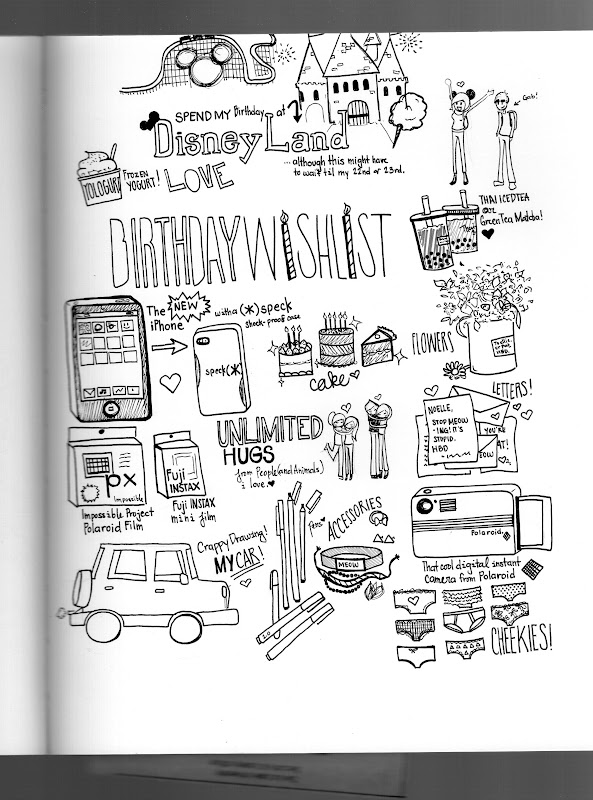 SPEND MY Birthday at
DisneyLand
...although this might have
to wait 'til my 22nd or 23rd.
YOLOGURT
FROZEN
YOGURT!
LOVE
← Gab!
THAI ICED TEA
or
Green Tea Matcha!
BIRTHDAY WISHLIST
The NEW
iPhone
with a (*) speck
shock-proof case
speck(*
cake
FLOWERS
LETTERS!
NOELLE,
STOP MEOW
-ING! IT'S
STUPID.
HBD
YOU'RE
AT!
EOW
UNLIMITED
HUGS
from People (and Animals)
i love.
px
Impossible
Impossible Project
Polaroid Film
Fuji
INSTAX
Fuji INSTAX
mini film
Crappy Drawing!
MY CAR!
Pens
ACCESSORIES
MEOW
Polaroid
That cool digital instant
camera from Polaroid
CHEEKIES!